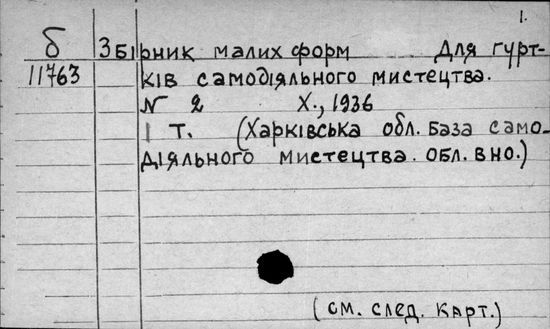 1.
б Збірник малих форм Для гурт-
11763 ків самодіяльного мистецтва.
N 2 Х., 1936
1 т. (Харківська обл. база само-
діяльного мистецтва. обл. вно.)
(см. след. карт.)